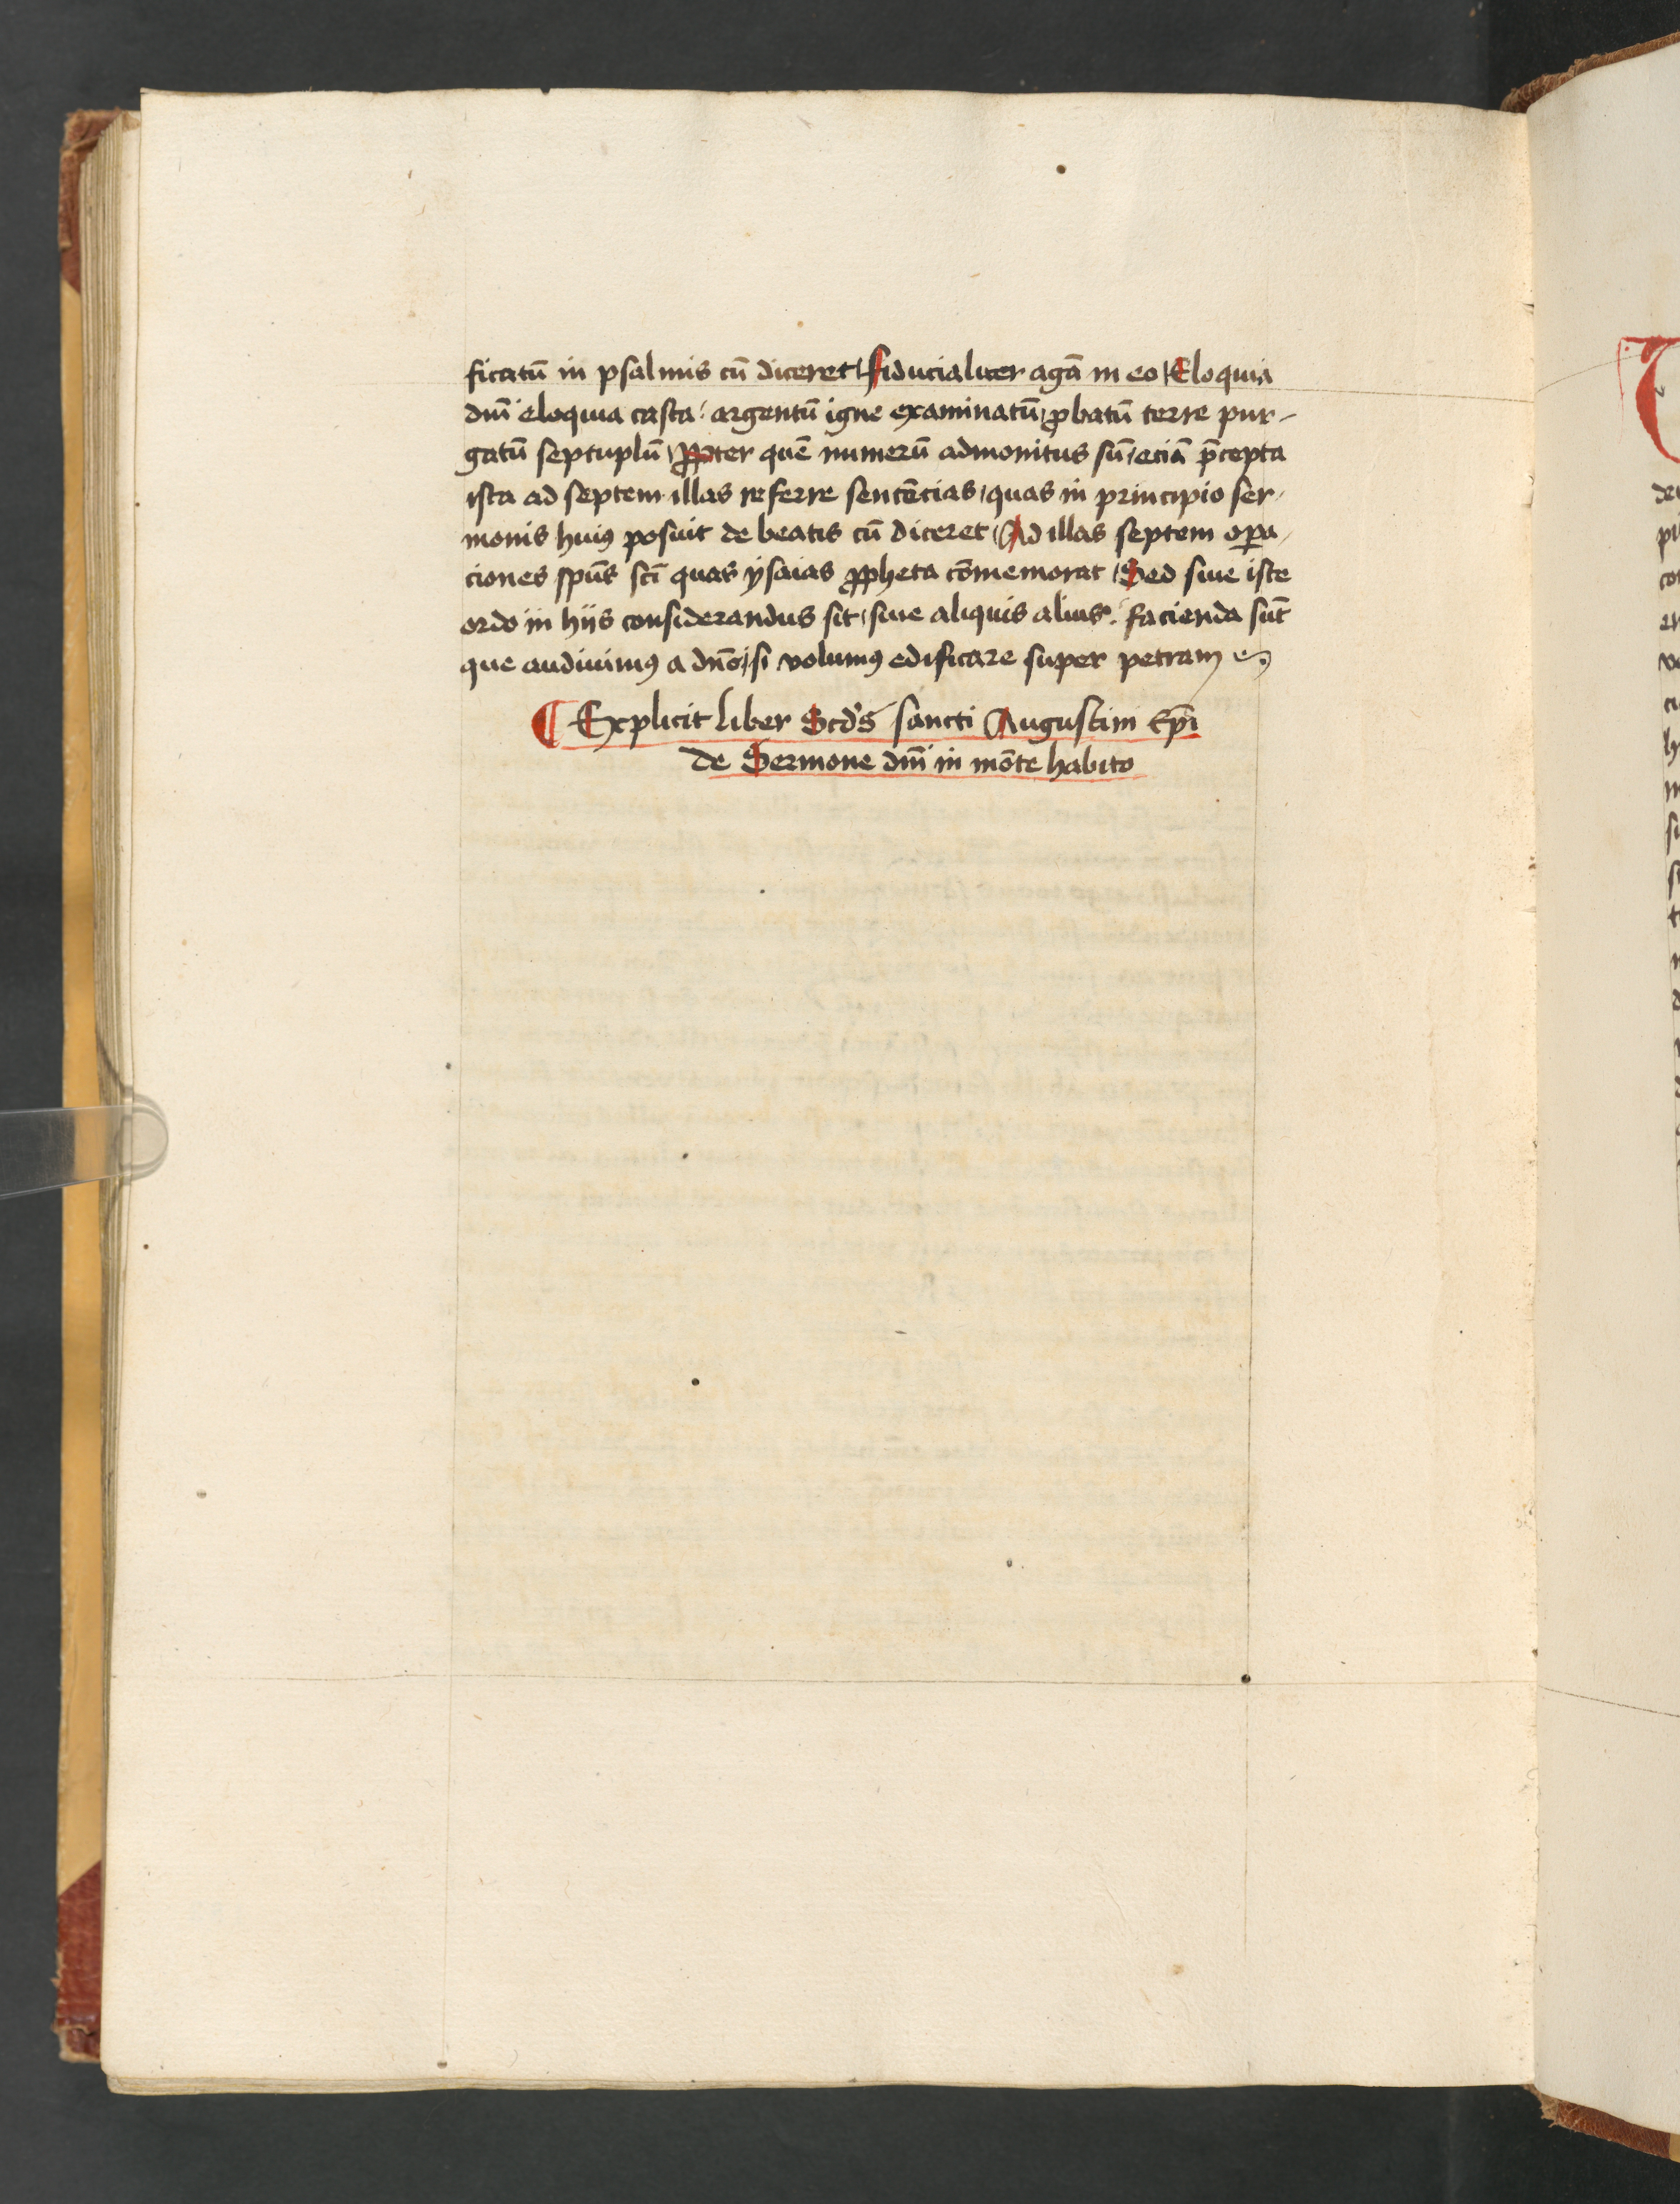 ficatū in psalmis cū diceret / fiducialiter agā in eo / Eloquia
dnī eloquia casta / argentū igne examinatū / ꝓbatū terre pur-
gatū septuplū / Ꝓpter quē numerū admonitus sū / eciā p̄cepta
ista ad septem illas referre sentēcias / quas in principio ser-
monis huiꝰ posuit de beatis cū diceret / Ad illas septem oꝑa-
ciones spūs scī quas ysaias ꝓpheta cōmemorat / Sed siue iste
ordo in hijs considerandus sit / siue aliquis alius / facienda sūt
que audiuimꝰ a dnō / si volumꝰ edificare super petram
¶ Explicit liber Scd's sancti Augustini Ep̄i
de Sermone dnī in mōte habito